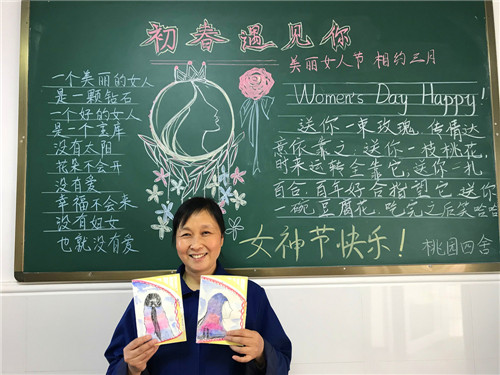 初春遇见你
美丽女人节 相约三月
一个美丽的女人
是一颗钻石
一个好的女人
是一个宝库
没有太阳
花朵不会开
没有爱
幸福不会来
没有妇女
也就没有爱
Women's Day Happy!
送你一束玫瑰,传情达
意你靠之;送你一枝桃花,
时来运转全靠它,送你一扎
百合,百年好合指望它,送你
一碗豆腐花,吃完之后笑哈哈
女神节快乐!
桃园四舍